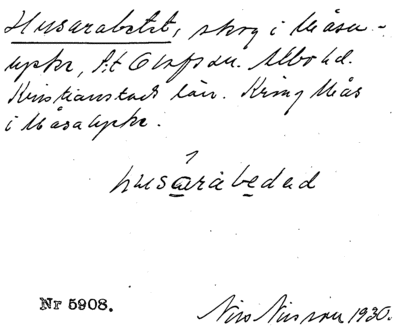 Husarabetet, skog i Måsa-
lycke, S:t Olofs sn. Albo hd.
Kristianstads län. Kring Mås
i Måsalycke.
husarabedad
Nr 5908.
Nils Nilsson 1930.